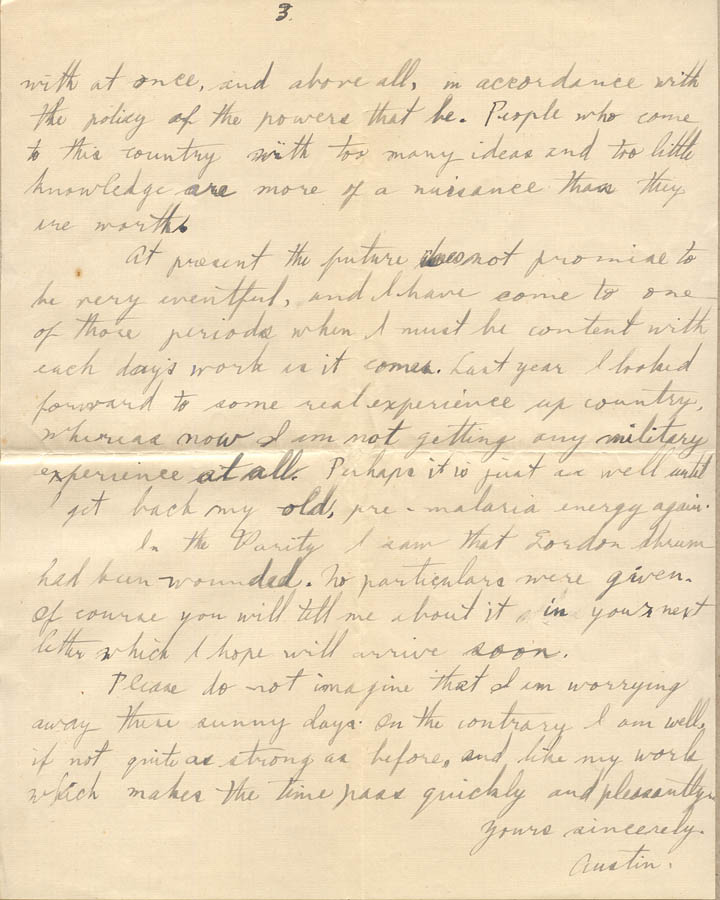 3.
with at once, and above all, in accordance with
the policy of the powers that be. People who come
to this country with too many ideas and too little
knowledge are more of a nuisance than they
are worth.
At present the future does not promise to
be very eventful, and I have come to one
of those periods when I must be content with
each day's work as it comes. Last year I looked
forward to some real experience up country,
whereas now I am not getting any military
experience at all. Perhaps it is just as well until
I get back my old, pre-malaria energy again.
In the Varsity I saw that Gordon Shrum
had been wounded. No particulars were given.
Of course you will tell me about it in your next
letter which I hope will arrive soon.
Please do not imagine that I am worrying
away these sunny days. On the contrary I am well,
if not quite as strong as before, and like my work
which makes the time pass quickly and pleasantly.
Yours sincerely
Austin.